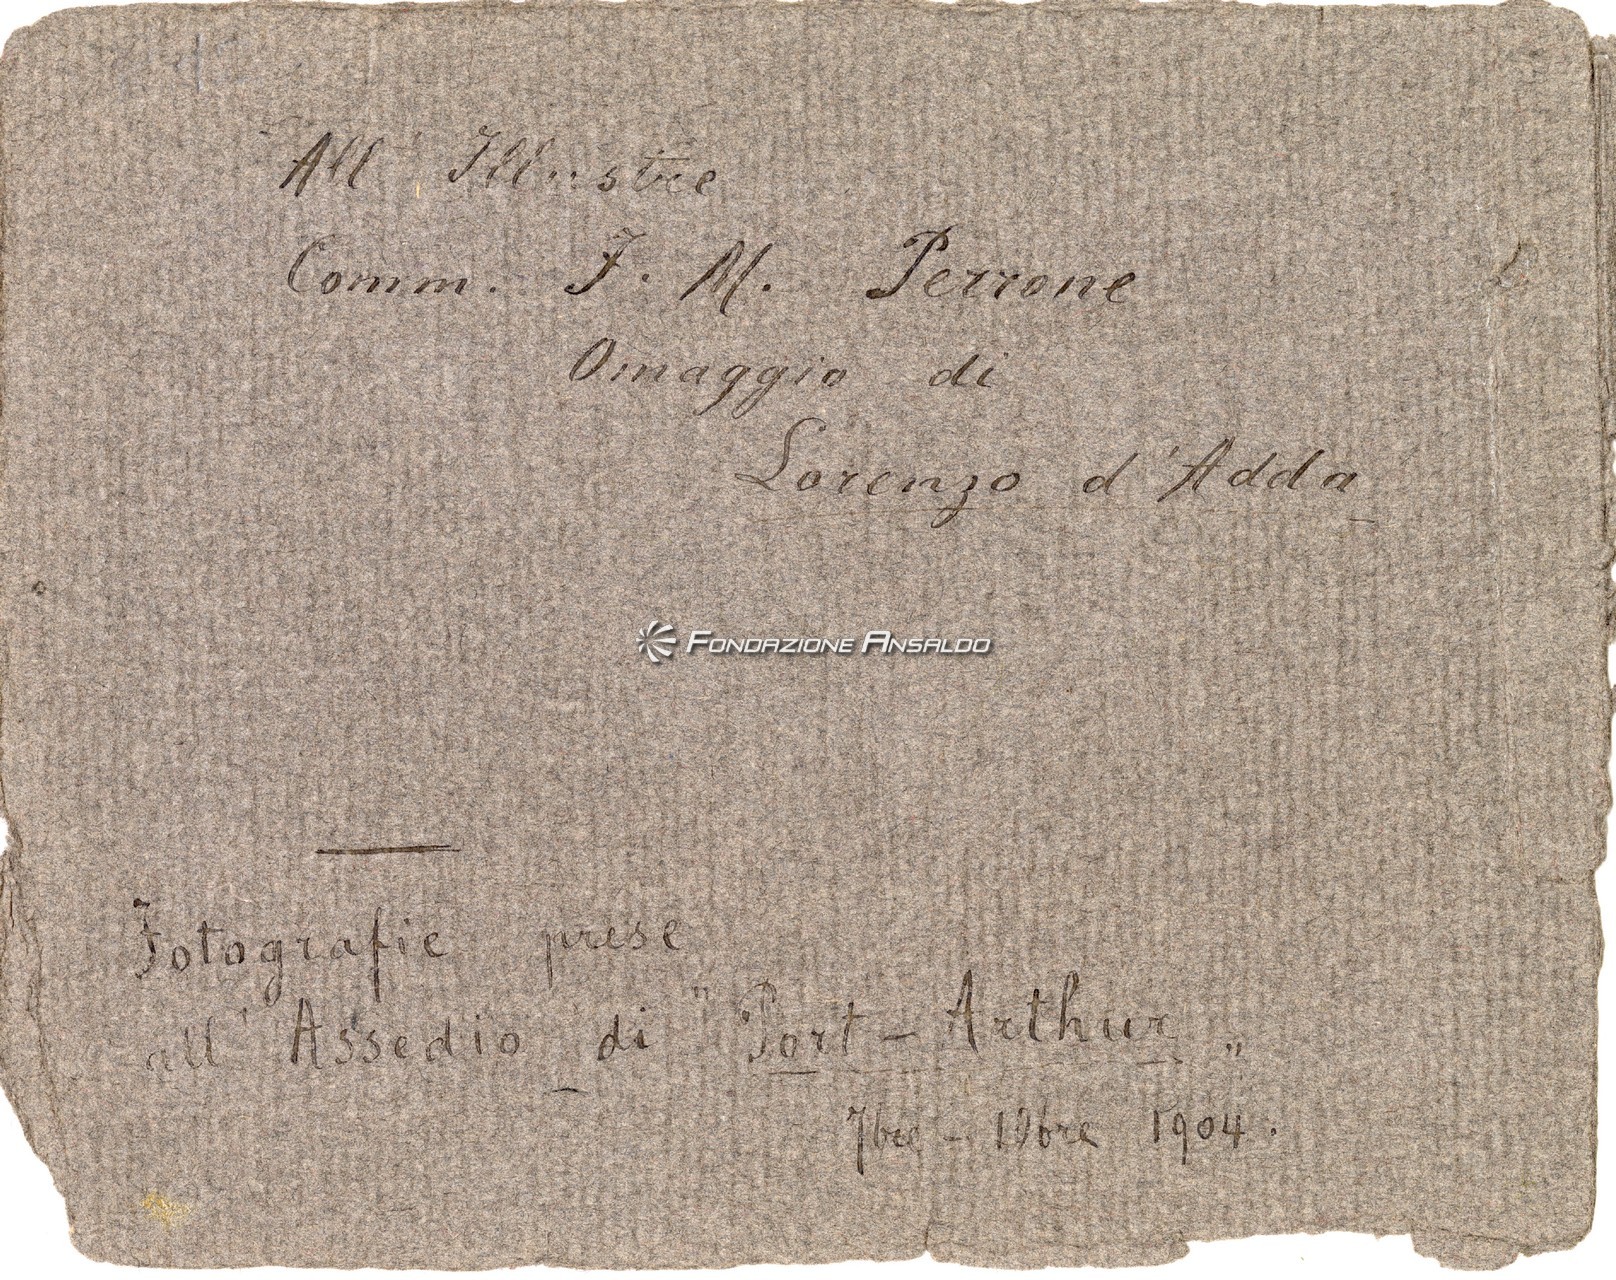 All' Illustre
Comm. F. M. Perrone
Omaggio di
Lorenzo d'Adda
FONDAZIONE ANSALDO
Fotografie prese
all' Assedio di "Port-Arthur"
7bre - 10bre 1904.